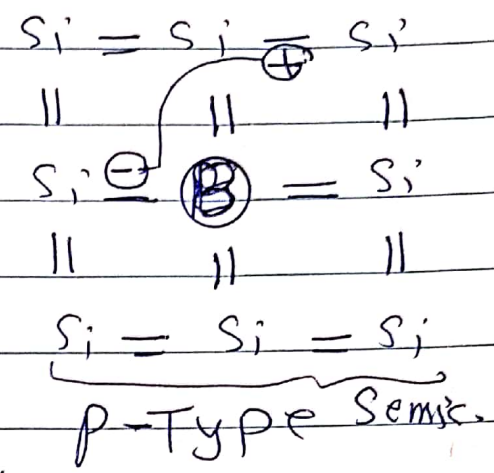 Si = Si = Si
⊕
|| || ||
Si ⊖ = B = Si
|| || ||
Si = Si = Si
P-Type Semic.